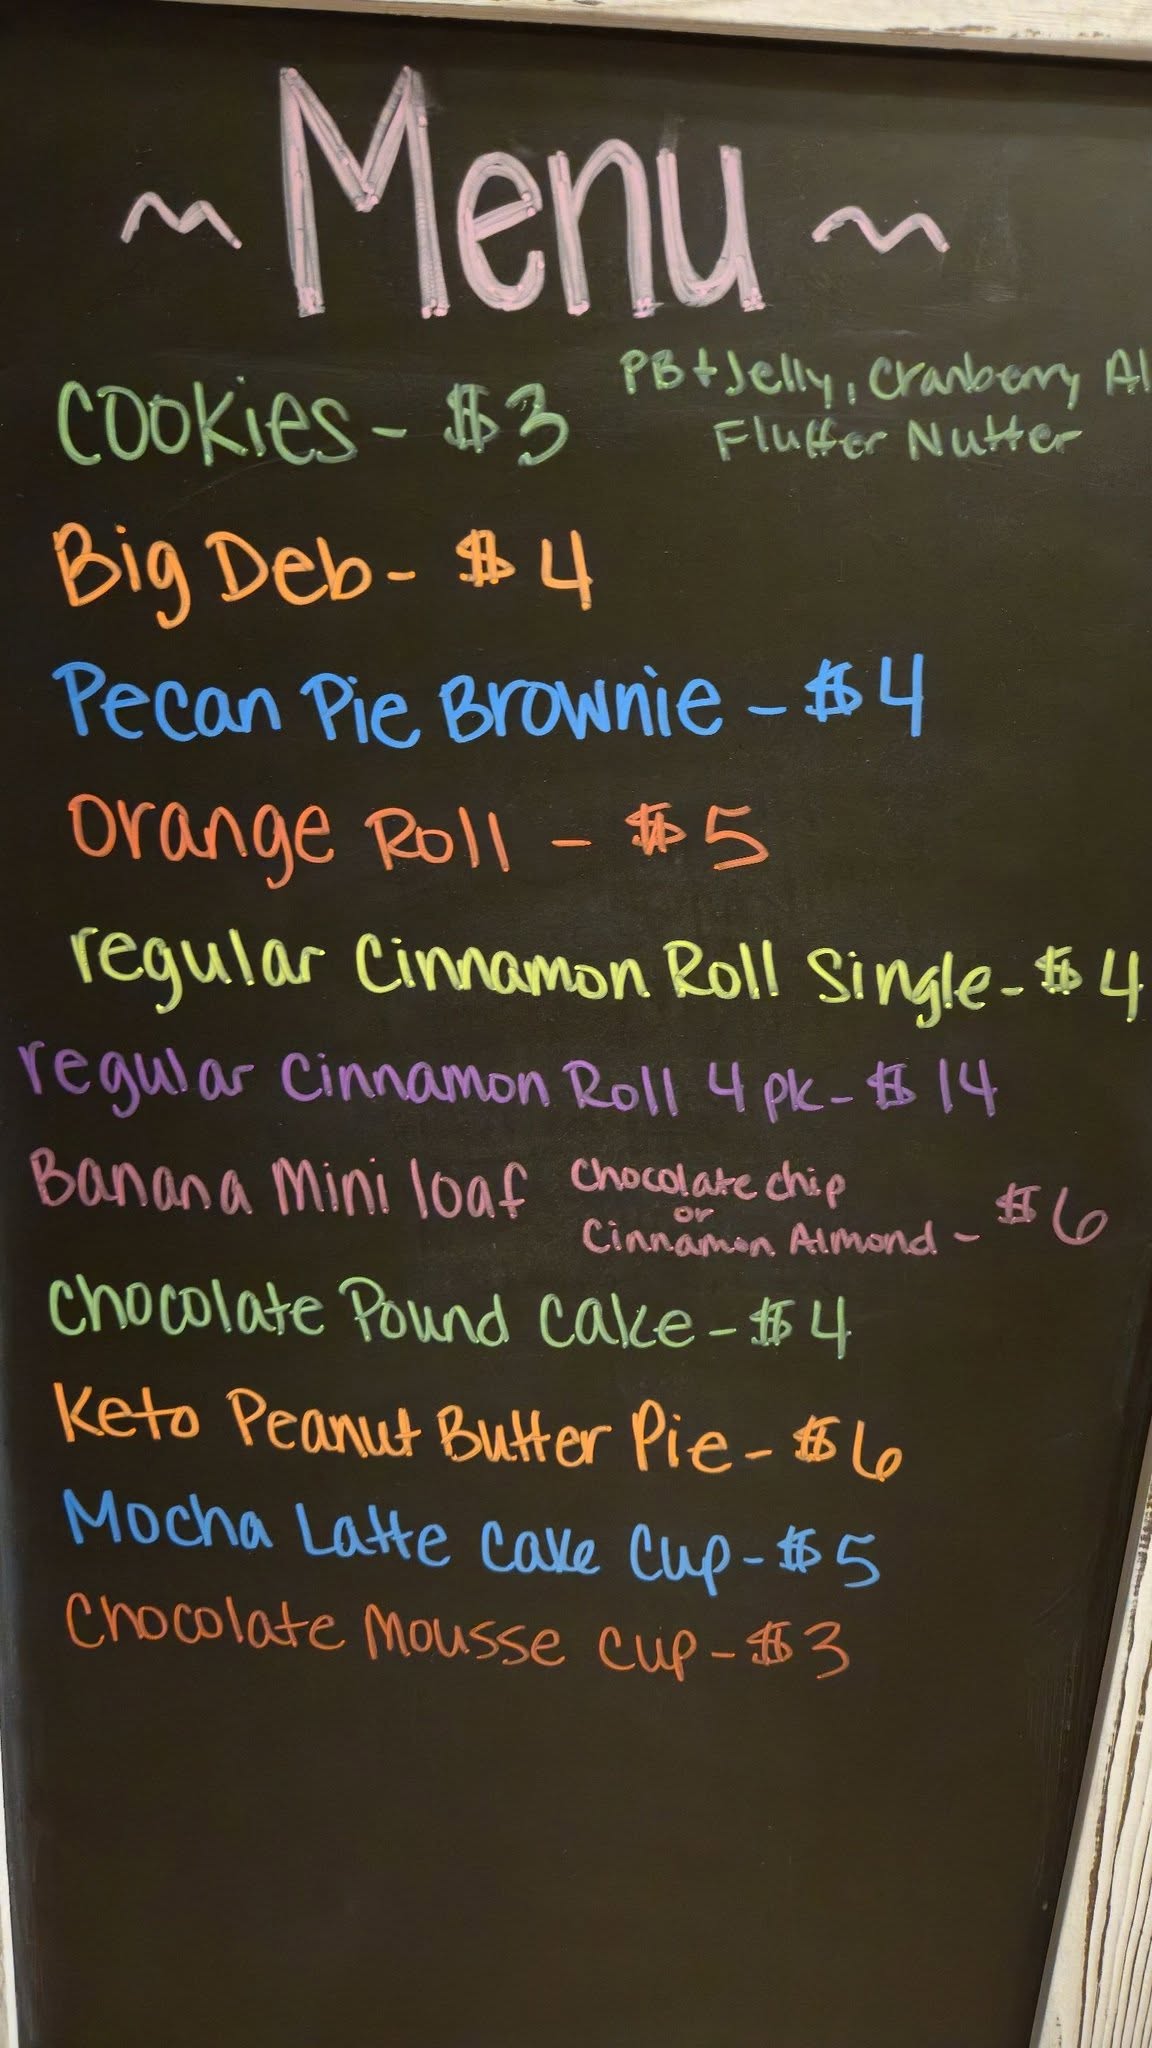 ~ Menu ~
Cookies - $3 PB + Jelly, Cranberry
Fluffer Nutter
Big Deb - $4
Pecan Pie Brownie - $4
Orange Roll - $5
regular Cinnamon Roll Single - $4
regular Cinnamon Roll 4 pk - $14
Banana Mini loaf Chocolate chip
or
Cinnamon Almond - $6
Chocolate Pound Cake - $4
Keto Peanut Butter Pie - $6
Mocha Latte Cake Cup - $5
Chocolate Mousse Cup - $3